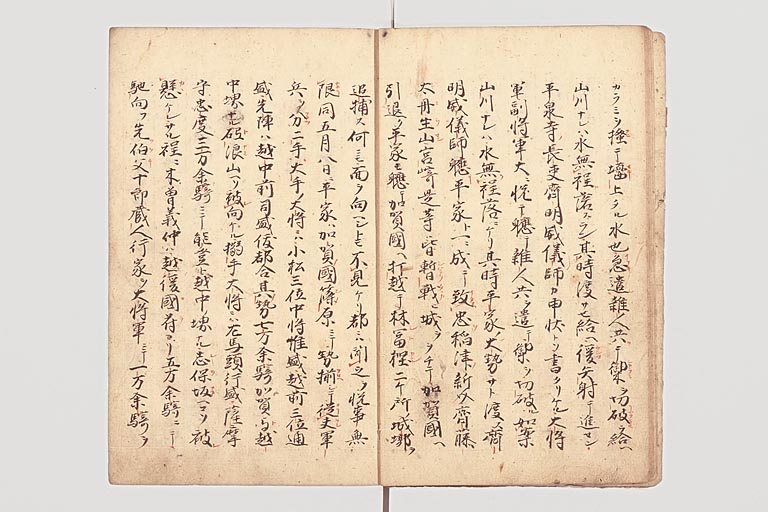 カラミヲ搔テ塞上タル水也急遣雜人共ヲ柵ヲ切破セ給ヘ
山川ナレハ水無程落ヘシ其時渡サセ給ヘ後矢射テ進セン
平泉寺長吏齊明威儀師カ申伏トソ書タリケル大將
軍副將軍大ニ悅テ聽テ雜人共ヲ遣テ柵ヲ切破ル如案
山川ナレハ水無程落ニケリ其時平家大勢サト渡ス齊
明威儀師聽平家ト一ニ成テ致忠稻津新介齊藤
太丹生山宮崎是等皆暫戰城ヲヲチテ加賀國ヘ
引退ク平家モ聽テ加賀國ヘ打越テ林富樫二ケ所ノ城墎ヲ
追捕ス何ニ面ヲ向ヘシトモ不見ケリ都ニハ聞之ヲ悅事無
限同五月八日ニ平家ハ加賀國篠原ニテ勢揃テ從夫軍
兵ヲ分二手大手ノ大將ニハ小松三位中將惟盛越前三位通
盛先陣ハ越中前司盛俊都合其勢七万余騎加賀与越
中堺ナル砺浪山ヘソ被向ケル搦手大將ニハ左馬頭行盛薩摩
守忠度三万余騎ニテ能登与越中堺ナル志保坂ヘソ被
懸ケレサル程ニ木曾義仲ハ越後國府ニアリ五万余騎ニテ
馳向フ先伯父十郎蔵人行家ヲ大將軍ニテ一万余騎ヲ